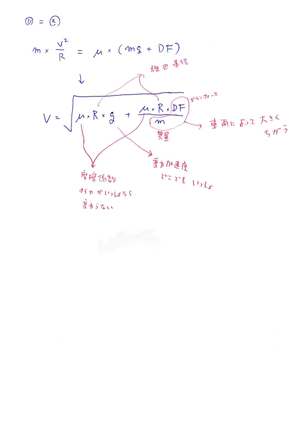 ① = ②
m × V²/R = μ × (mg + DF)
↓
旋回半径
V = √(μ・R × g + μ・R・DF/m)
ダウンフォース
質量
車両によって大きく
ちがう
摩擦係数
タイヤがいっしょなら
変わらない
重力加速度
どこでもいっしょ